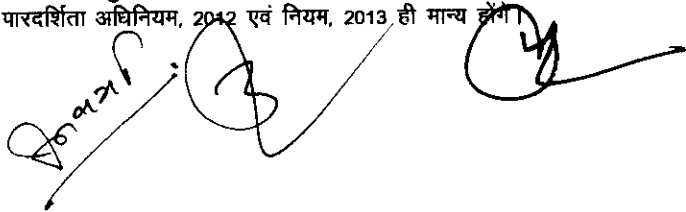 पारदर्शिता अधिनियम, 2012 एवं नियम, 2013 ही मान्य होंगे।